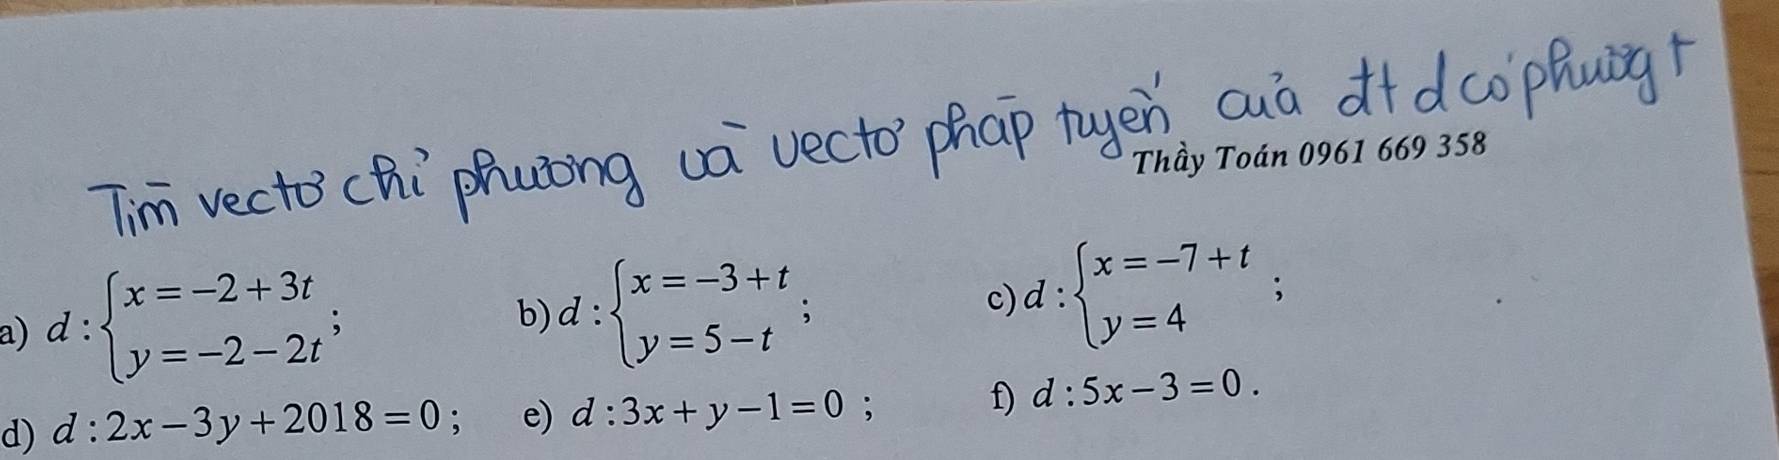 Tìm vectơ chỉ phương và vectơ pháp tuyến của đt d có phương t
Thầy Toán 0961 669 358
a) d : { x = −2 + 3t
y = −2 − 2t ;
b) d : { x = −3 + t
y = 5 − t ;
c) d : { x = −7 + t
y = 4 ;
d) d : 2x − 3y + 2018 = 0 ; e) d : 3x + y − 1 = 0 ; f) d : 5x − 3 = 0 .